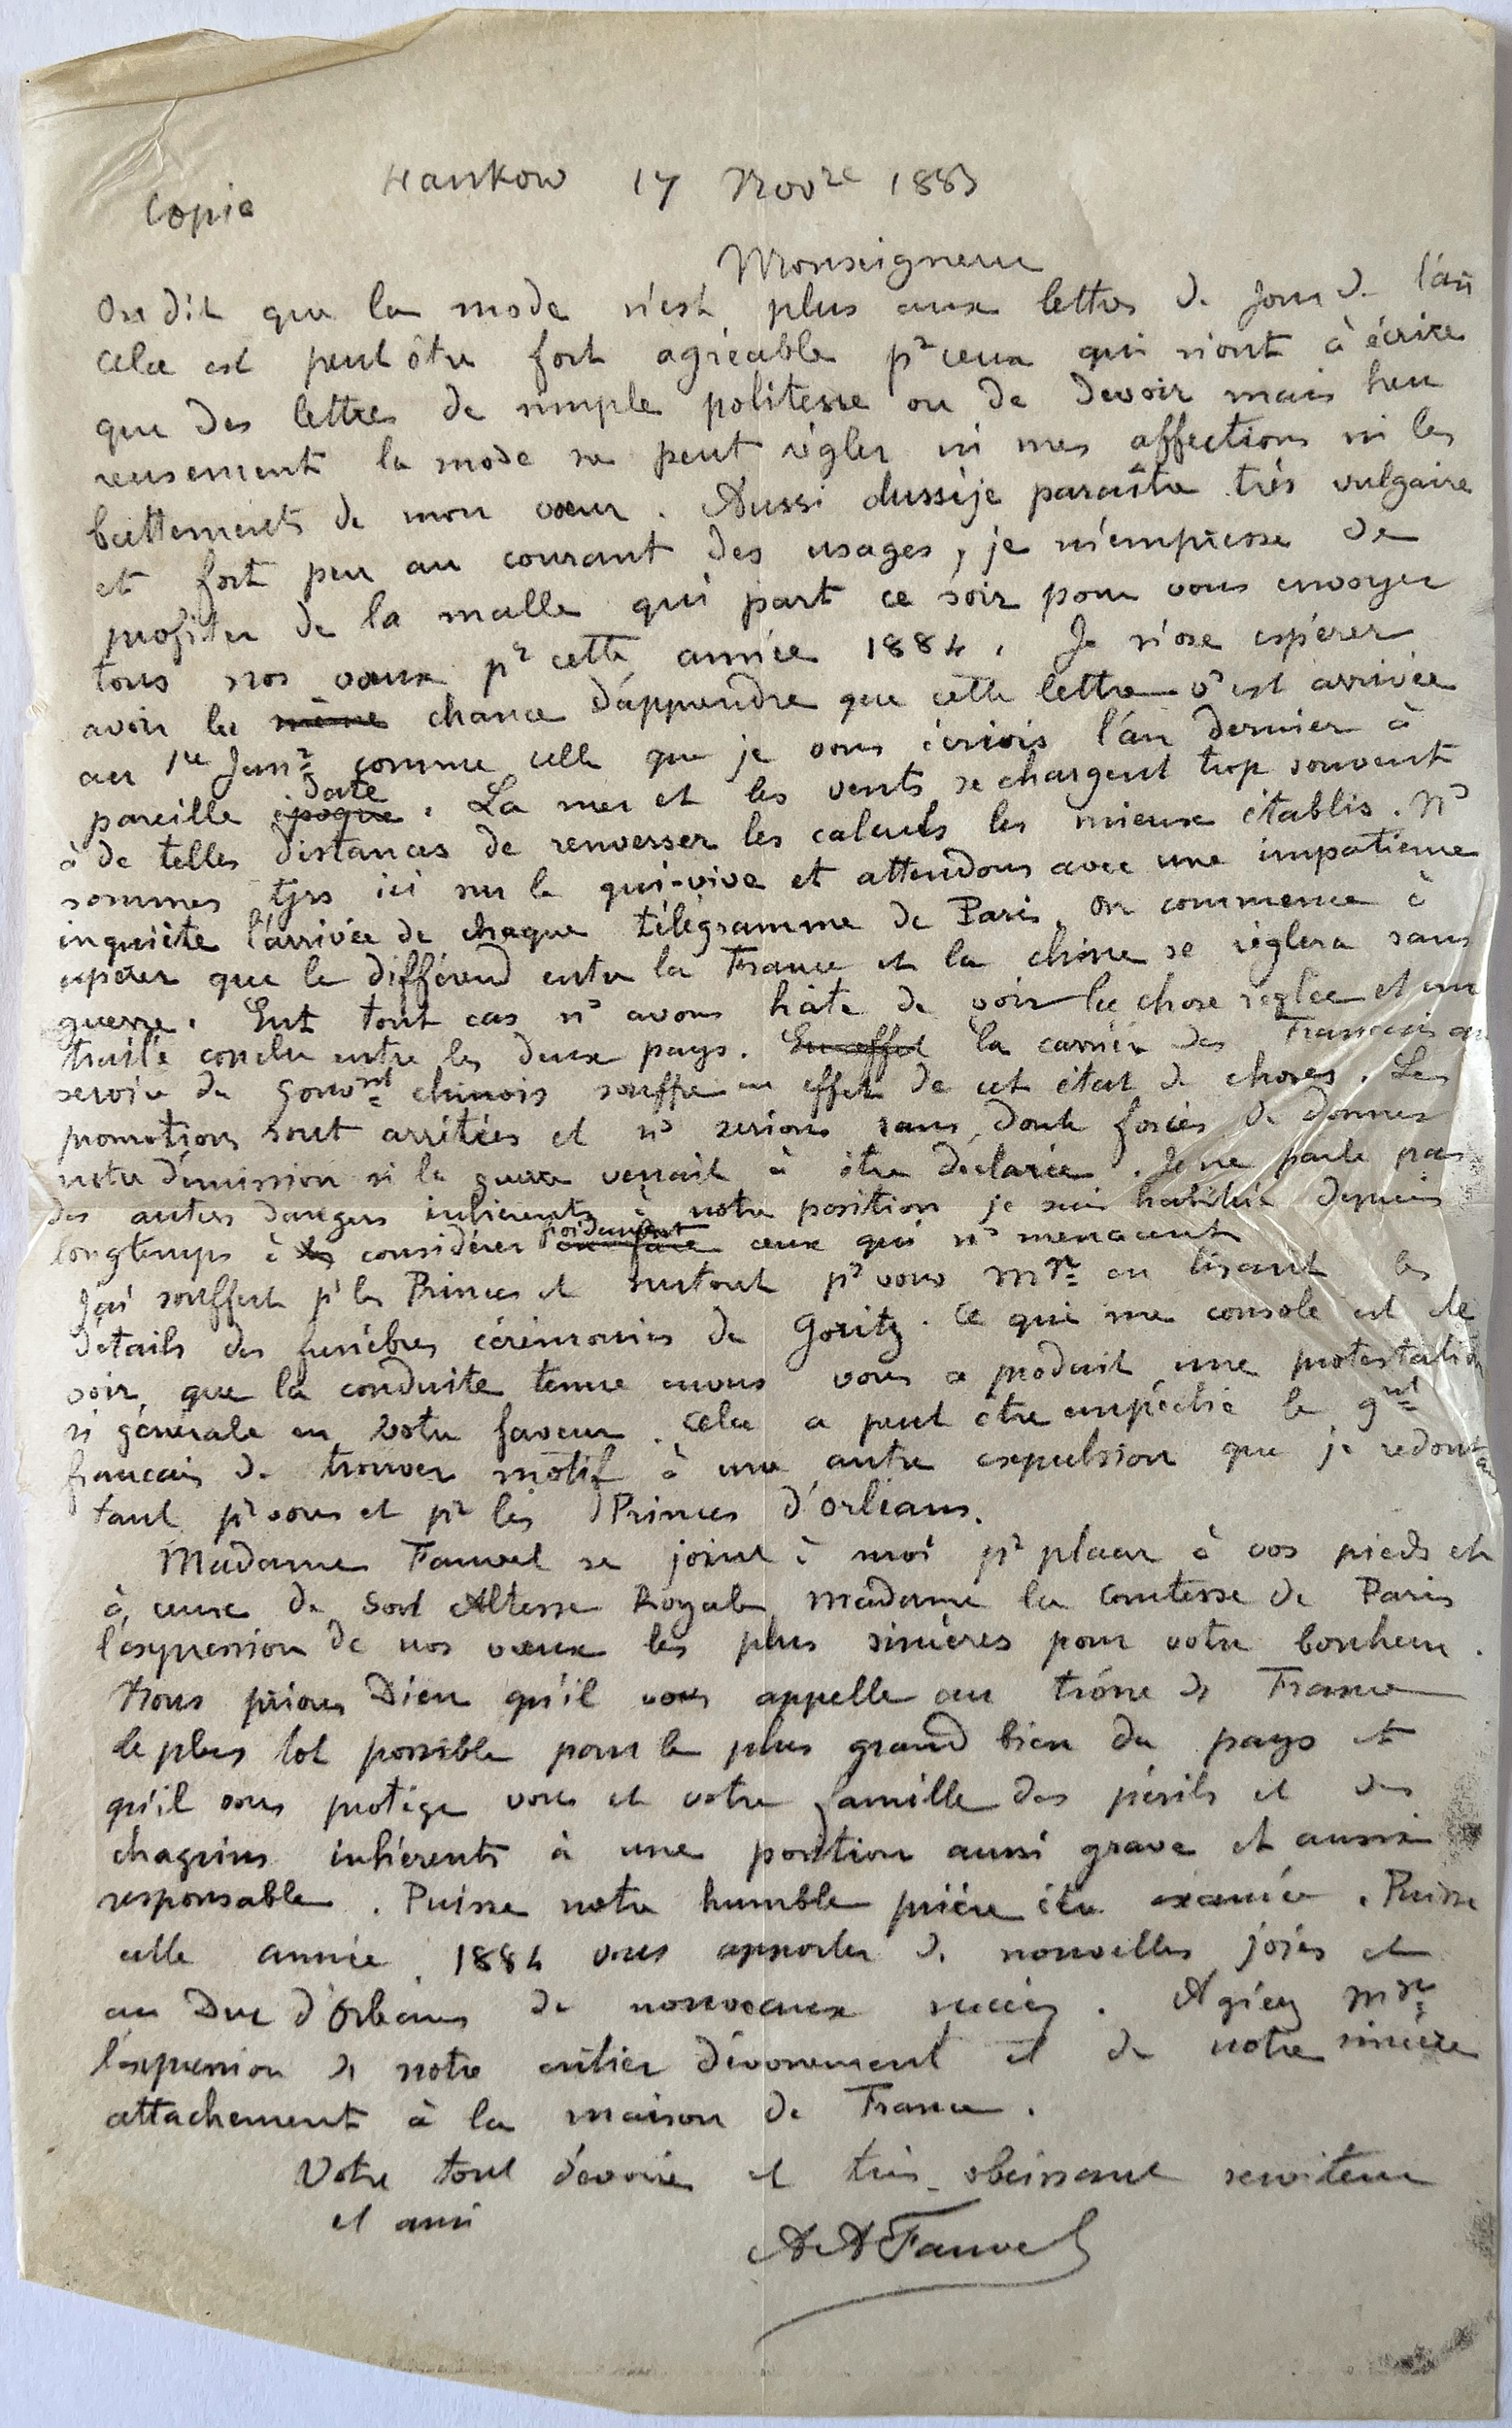 Hankow 17 Novre 1883
Copie
Monseigneur
On dit que la mode n'est plus aux lettres de jour de l'an
cela est peut être fort agréable pr ceux qui n'ont à écrire
que des lettres de simple politesse ou de devoir mais heu
reusement la mode ne peut régler ni mes affections ni les
battements de mon cœur. Aussi dussèje paraître très vulgaire
et fort peu au courant des usages, je m'empresse de
profiter de la malle qui part ce soir pour vous envoyer
tous nos vœux pr cette année 1884. Je n'ose espérer
avoir la même chance d'apprendre que cette lettre vs est arrivée
au 1er Janr comme celle que je vous écrivis l'an dernier à
date
pareille époque. La mer et les vents se chargent trop souvent
à de telles distances de renverser les calculs les mieux établis. Ns
sommes tjrs ici sur le qui-vive et attendons avec une impatience
inquiète l'arrivée de chaque télégramme de Paris. On commence à
espérer que le différend entre la France et la Chine se règlera sans
guerre. Ent tout cas ns avons hâte de voir la chose réglée et un
traité conclu entre les deux pays. En effet la carrière des Francais au
service du gouvnt chinois souffre en effet de cet état de choses. Les
promotions sont arrêtées et ns serions sans doute forcés de donner
notre démission si la guerre venait à être declarée. Je ne parle pas
des autres dangers inhérents à notre position je suis habitué depuis
froidement
longtemps à les considérer en face ceux qui ns menacent
J'ai souffert pr les Princes et surtout pr vous Mgr en lisant les
détails des funèbres cérémonies de Goritz. Ce qui me console est de
voir que la conduite tenue envers vous a produit une protestation
si générale en votre faveur. Cela a peut être empêché le gnt
francais de trouver motif à une autre expulsion que je redoutais
tant pr vous et pr les Princes d'Orléans.
Madame Fauvel se joint à moi pr placer à vos pieds et
à ceux de Son Altesse Royale Madame la Comtesse de Paris
l'expression de nos vœux les plus sincères pour votre bonheur.
Nous prions Dieu qu'il vous appelle au trône de France
le plus tot possible pour le plus grand bien du pays et
qu'il vous protège vous et votre famille des périls et des
chagrins inhérents à une position aussi grave et aussi
responsable. Puisse notre humble prière être exaucée. Puisse
cette année 1884 vous apporter de nouvelles joies et
au Duc d'Orléans de nouveaux succès. Agréez Mgr
l'expression de notre entier dévouement et de notre sincère
attachement à la maison de France.
Votre tout dévoué et très obeissant serviteur
et ami
A A Fauvel